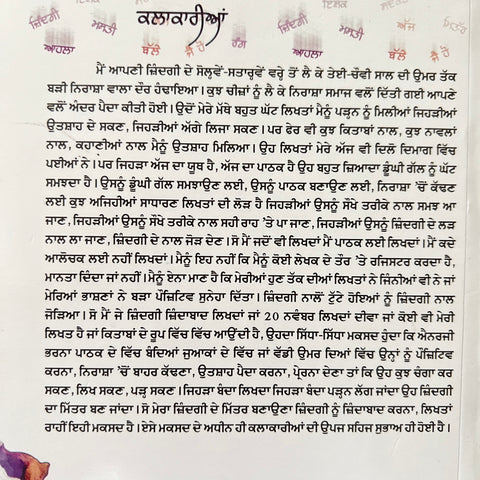 ਜ਼ਿੰਦਗੀ ਮਸਤੀ ਅੱਜ
ਆਹਲਾ ਬੱਲੇ ਜੈ ਹੋ ਰੰਗ ਆਹਲਾ ਬੱਲੇ ਜੈ ਹੋ
ਕਲਾਕਾਰੀਆਂ
ਮੈਂ ਆਪਣੀ ਜ਼ਿੰਦਗੀ ਦੇ ਸੋਲ੍ਹਵੇਂ-ਸਤਾਰ੍ਹਵੇਂ ਵਰ੍ਹੇ ਤੋਂ ਲੈ ਕੇ ਤੇਈ-ਚੌਵੀ ਸਾਲ ਦੀ ਉਮਰ ਤੱਕ
ਬੜੀ ਨਿਰਾਸ਼ਾ ਵਾਲਾ ਦੌਰ ਹੰਢਾਇਆ। ਕੁਝ ਚੀਜ਼ਾਂ ਨੂੰ ਲੈ ਕੇ ਨਿਰਾਸ਼ਾ ਸਮਾਜ ਵਲੋਂ ਦਿੱਤੀ ਗਈ ਆਪਣੇ
ਵਲੋਂ ਅੰਦਰ ਪੈਦਾ ਕੀਤੀ ਹੋਈ। ਉਦੋਂ ਮੇਰੇ ਮੱਥੇ ਬਹੁਤ ਘੱਟ ਲਿਖਤਾਂ ਮੈਨੂੰ ਪੜ੍ਹਨ ਨੂੰ ਮਿਲੀਆਂ ਜਿਹੜੀਆਂ
ਉਤਸ਼ਾਹ ਦੇ ਸਕਣ, ਜਿਹੜੀਆਂ ਅੱਗੇ ਲਿਜਾ ਸਕਣ। ਪਰ ਫੇਰ ਵੀ ਕੁਝ ਕਿਤਾਬਾਂ ਨਾਲ, ਕੁਝ ਨਾਵਲਾਂ
ਨਾਲ, ਕਹਾਣੀਆਂ ਨਾਲ ਮੈਨੂੰ ਉਤਸ਼ਾਹ ਮਿਲਿਆ। ਉਹ ਲਿਖਤਾਂ ਮੇਰੇ ਅੱਜ ਵੀ ਦਿਲੋ ਦਿਮਾਗ ਵਿੱਚ
ਪਈਆਂ ਨੇ। ਪਰ ਜਿਹੜਾ ਅੱਜ ਦਾ ਯੂਥ ਹੈ, ਅੱਜ ਦਾ ਪਾਠਕ ਹੈ ਉਹ ਬਹੁਤ ਜ਼ਿਆਦਾ ਡੂੰਘੀ ਗੱਲ ਨੂੰ ਘੱਟ
ਸਮਝਦਾ ਹੈ। ਉਸਨੂੰ ਡੂੰਘੀ ਗੱਲ ਸਮਝਾਉਣ ਲਈ, ਉਸਨੂੰ ਪਾਠਕ ਬਣਾਉਣ ਲਈ, ਨਿਰਾਸ਼ਾ 'ਚੋਂ ਕੱਢਣ
ਲਈ ਕੁਝ ਅਜਿਹੀਆਂ ਸਾਧਾਰਣ ਲਿਖਤਾਂ ਦੀ ਲੋੜ ਹੈ ਜਿਹੜੀਆਂ ਉਸਨੂੰ ਸੌਖੇ ਤਰੀਕੇ ਨਾਲ ਸਮਝ ਆ
ਜਾਣ, ਜਿਹੜੀਆਂ ਉਸਨੂੰ ਸੌਖੇ ਤਰੀਕੇ ਨਾਲ ਸਹੀ ਰਾਹ 'ਤੇ ਪਾ ਜਾਣ, ਜਿਹੜੀਆਂ ਉਸਨੂੰ ਜ਼ਿੰਦਗੀ ਦੇ ਲੜ
ਨਾਲ ਲਾ ਜਾਣ, ਜ਼ਿੰਦਗੀ ਦੇ ਨਾਲ ਜੋੜ ਦੇਣ। ਸੋ ਮੈਂ ਜਦੋਂ ਵੀ ਲਿਖਦਾਂ ਮੈਂ ਪਾਠਕ ਲਈ ਲਿਖਦਾਂ। ਮੈਂ ਕਦੇ
ਆਲੋਚਕ ਲਈ ਨਹੀਂ ਲਿਖਦਾਂ। ਮੈਨੂੰ ਇਹ ਨਹੀਂ ਕਿ ਮੈਨੂੰ ਕੋਈ ਲੇਖਕ ਦੇ ਤੌਰ 'ਤੇ ਰਜਿਸਟਰ ਕਰਦਾ ਹੈ,
ਮਾਨਤਾ ਦਿੰਦਾ ਜਾਂ ਨਹੀਂ। ਮੈਨੂੰ ਏਨਾ ਮਾਣ ਹੈ ਕਿ ਮੇਰੀਆਂ ਹੁਣ ਤੱਕ ਦੀਆਂ ਲਿਖਤਾਂ ਨੇ ਜਿੰਨੀਆਂ ਵੀ ਨੇ ਜਾਂ
ਮੇਰਿਆਂ ਭਾਸ਼ਣਾਂ ਨੇ ਬੜਾ ਪੌਜ਼ਿਟਿਵ ਸੁਨੇਹਾ ਦਿੱਤਾ। ਜ਼ਿੰਦਗੀ ਨਾਲੋਂ ਟੁੱਟੇ ਹੋਇਆਂ ਨੂੰ ਜ਼ਿੰਦਗੀ ਨਾਲ
ਜੋੜਿਆ। ਸੋ ਮੈਂ ਜੇ ਜ਼ਿੰਦਗੀ ਜ਼ਿੰਦਾਬਾਦ ਲਿਖਦਾਂ ਜਾਂ 20 ਨਵੰਬਰ ਲਿਖਦਾਂ ਦੀਵਾ ਜਾਂ ਕੋਈ ਵੀ ਮੇਰੀ
ਲਿਖਤ ਹੈ ਜਾਂ ਕਿਤਾਬਾਂ ਦੇ ਰੂਪ ਵਿੱਚ ਵਿੱਚ ਆਉਂਦੀ ਹੈ, ਉਹਦਾ ਸਿੱਧਾ-ਸਿੱਧਾ ਮਕਸਦ ਹੁੰਦਾ ਕਿ ਐਨਰਜੀ
ਭਰਨਾ ਪਾਠਕ ਦੇ ਵਿੱਚ ਬੰਦਿਆਂ ਜੁਆਕਾਂ ਦੇ ਵਿੱਚ ਜਾਂ ਵੱਡੀ ਉਮਰ ਦਿਆਂ ਵਿੱਚ ਉਨ੍ਹਾਂ ਨੂੰ ਪੌਜ਼ਿਟਿਵ
ਕਰਨਾ, ਨਿਰਾਸ਼ਾ 'ਚੋਂ ਬਾਹਰ ਕੱਢਣਾ, ਉਤਸ਼ਾਹ ਪੈਦਾ ਕਰਨਾ, ਪ੍ਰੇਰਨਾ ਦੇਣਾ ਤਾਂ ਕਿ ਉਹ ਕੁਝ ਚੰਗਾ ਕਰ
ਸਕਣ, ਲਿਖ ਸਕਣ, ਪੜ੍ਹ ਸਕਣ। ਜਿਹੜਾ ਬੰਦਾ ਲਿਖਦਾ ਜਿਹੜਾ ਬੰਦਾ ਪੜ੍ਹਨ ਲੱਗ ਜਾਂਦਾ ਉਹ ਜ਼ਿੰਦਗੀ
ਦਾ ਮਿੱਤਰ ਬਣ ਜਾਂਦਾ। ਸੋ ਮੇਰਾ ਜ਼ਿੰਦਗੀ ਦੇ ਮਿੱਤਰ ਬਣਾਉਣਾ ਜ਼ਿੰਦਗੀ ਨੂੰ ਜ਼ਿੰਦਾਬਾਦ ਕਰਨਾ, ਲਿਖਤਾਂ
ਰਾਹੀਂ ਇਹੀ ਮਕਸਦ ਹੈ। ਏਸੇ ਮਕਸਦ ਦੇ ਅਧੀਨ ਹੀ ਕਲਾਕਾਰੀਆਂ ਦੀ ਉਪਜ ਸਹਿਜ ਸੁਭਾਅ ਹੀ ਹੋਈ ਹੈ।